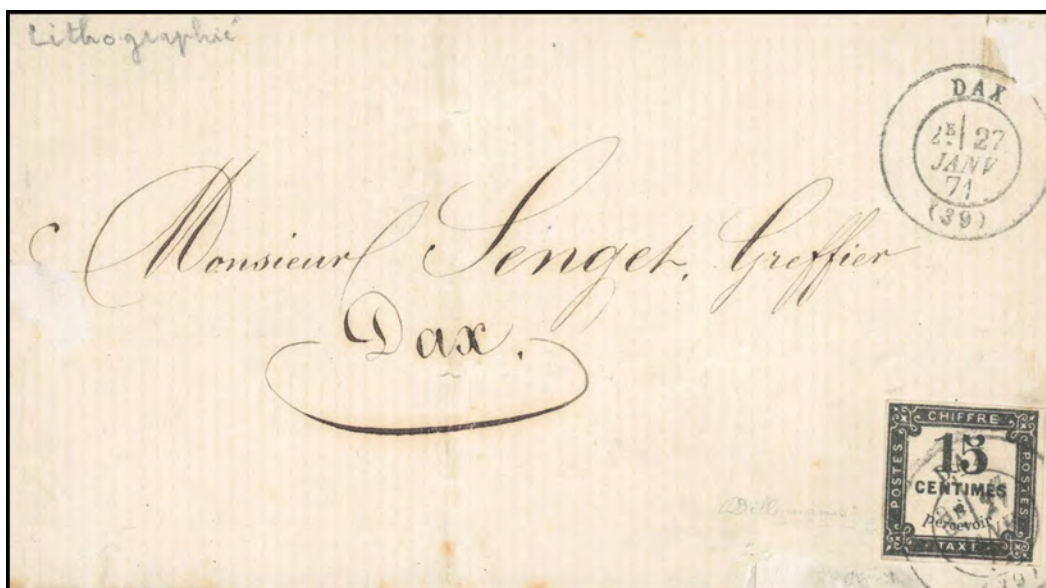 Lithographié
DAX
2E 27
JANV
71
(39)
Monsieur Senget, Greffier
Dax.
CHIFFRE
POSTES
POSTES
15
CENTIMES
à
percevoir
TAXE